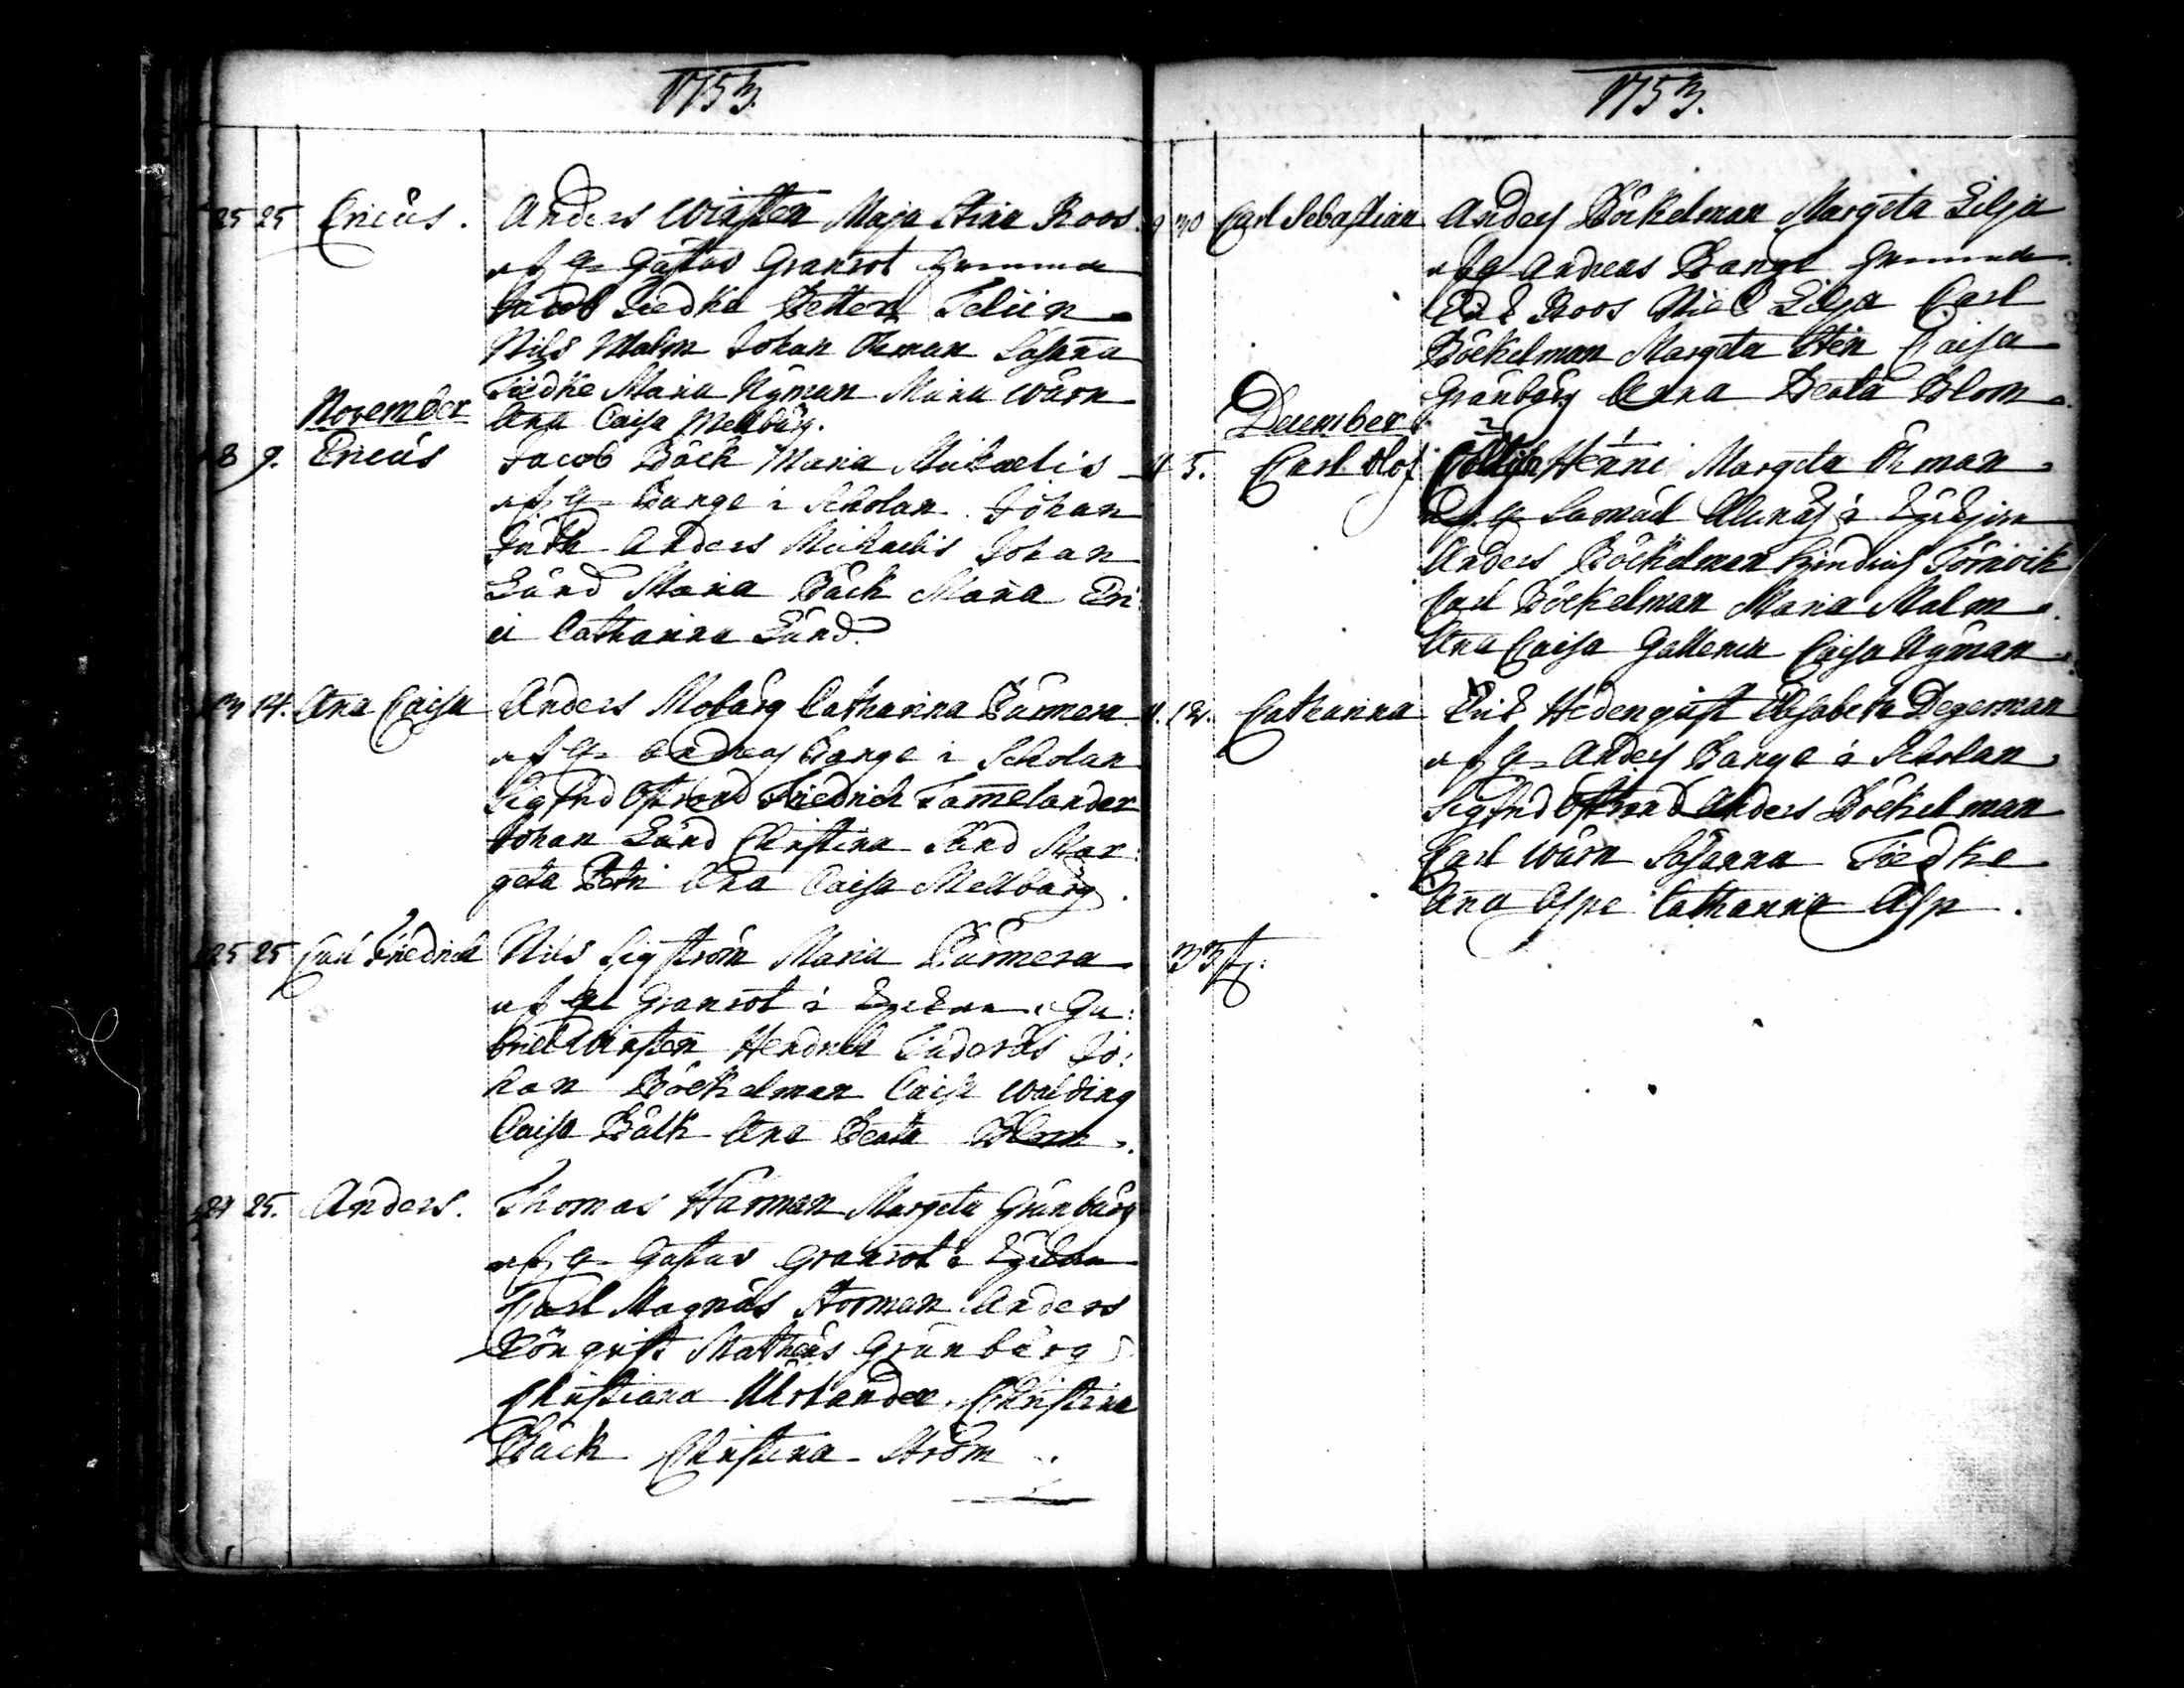 1753.
25 25 Ericus. Anders Wirsten Maja Stina Roos.
af G Gustav Granrot hemma
Jacob Tiedke Petter Teliin
Nils Malm Johan Öhman Sasanna
Tiedke Maria Nyman Maria Wärn
November Ana Caisa Mellbärg.
8 9. Ericus Jacob Bäck Maria Mickaelis
af G Bange i Scholan Johan
Anders Michaelis Johan
Lund Maria Bäck Maria Eri
ci Catharina Lund
13 14. Ana Caisa Anders Mobärg Catharina Burmera
af G Andreas Bange i Scholan
Sigfrid Östrand Friedrich Tamelander
Johan Lund Christina Lund Mar:
geta Petri Ana Caisa Mellbärg.
25 25 Carl Friedrich Nils Sigström Maria Burmera
af G Granrot i Kyrkan Ga:
briel Wirsten Hendrich Tuderus Jo:
han Böckelman Caisa Walding
Caisa Bäck Ana Beata Blom.
24 25. Anders. Thomas Harman Margeta Gränbärg
af G Gustav Granrot i Kyrkan
Carl Magnus Storman Anders
Rönqvist Matheus Gränbärg
Christiana Uhrlander, Christina
Bäck Christina Ström.
1753.
9 30 Carl Sebastian Anders Böckelman Margeta Lilja
af G Andreas Bange hemma.
Erik Roos Nils Lilja Carl
Böckelman Margeta Sten Caisa
Gränbärg Anna Beata Blom.
December
4 5. Carl Olof Henni Margeta Öhman
af G Samuel Alenus i Kyrkian
Anders Böckelman Hindrich Törnvik
Carl Böckelman Maria Malm.
Ana Caisa Gallenia Caisa Nyman.
11. 12. Catharina Erik Hedenqvist Elisabeta Degerman
af G Anders Bange i Scholan
Sigfrid Östrand Anders Böckelman
Carl Wärn Sasanna Tiedke
Ana Aspe Catharina Asp.
33 st: